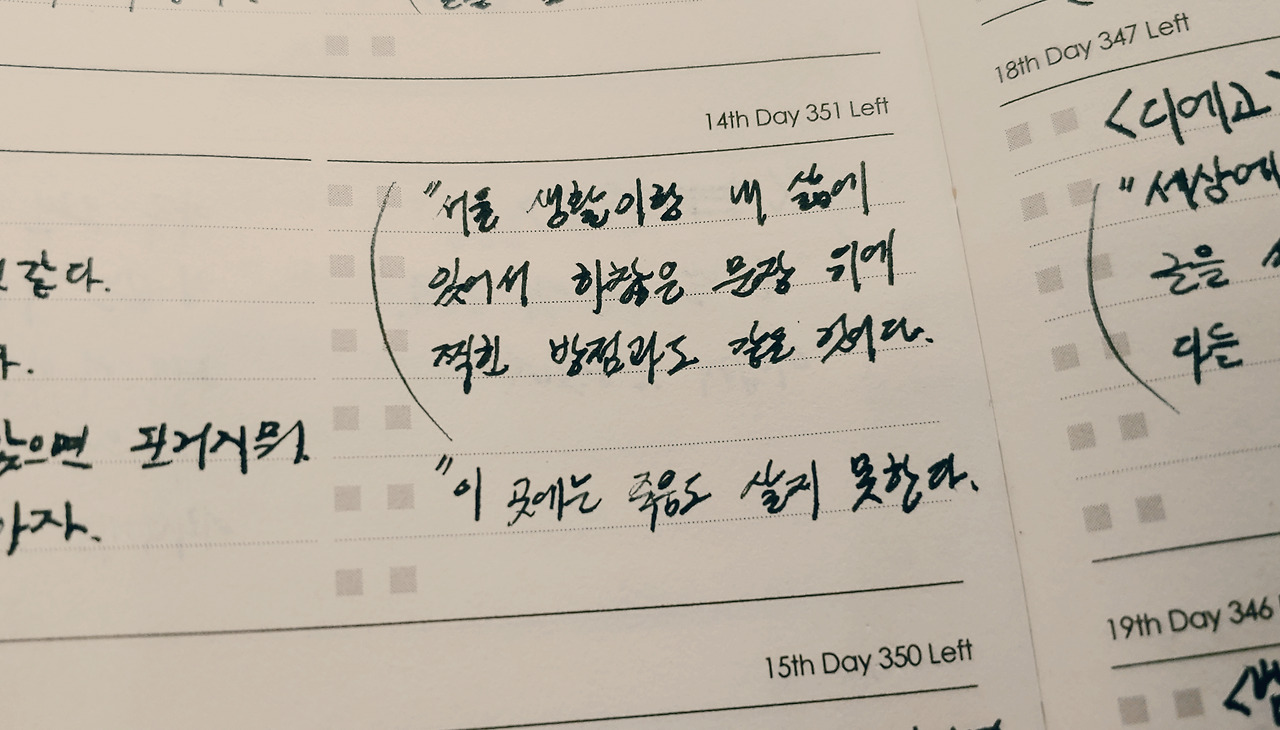 갈다.
포기지 뭐.
가자.
14th Day 351 Left
"서울 생활이란 내 삶에
있어서 하찮은 문장 위에
찍힌 방점과도 같은 것이다.
"이 곳에는 죽음도 살지 못한다.
15th Day 350 Left
18th Day 347 Left
<디에고
"세상에
글을
다들
19th Day 346